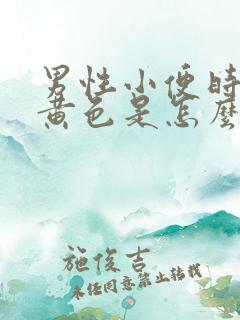 男性小便时
黄色是怎麼
施俊吉
未经同意禁止转载